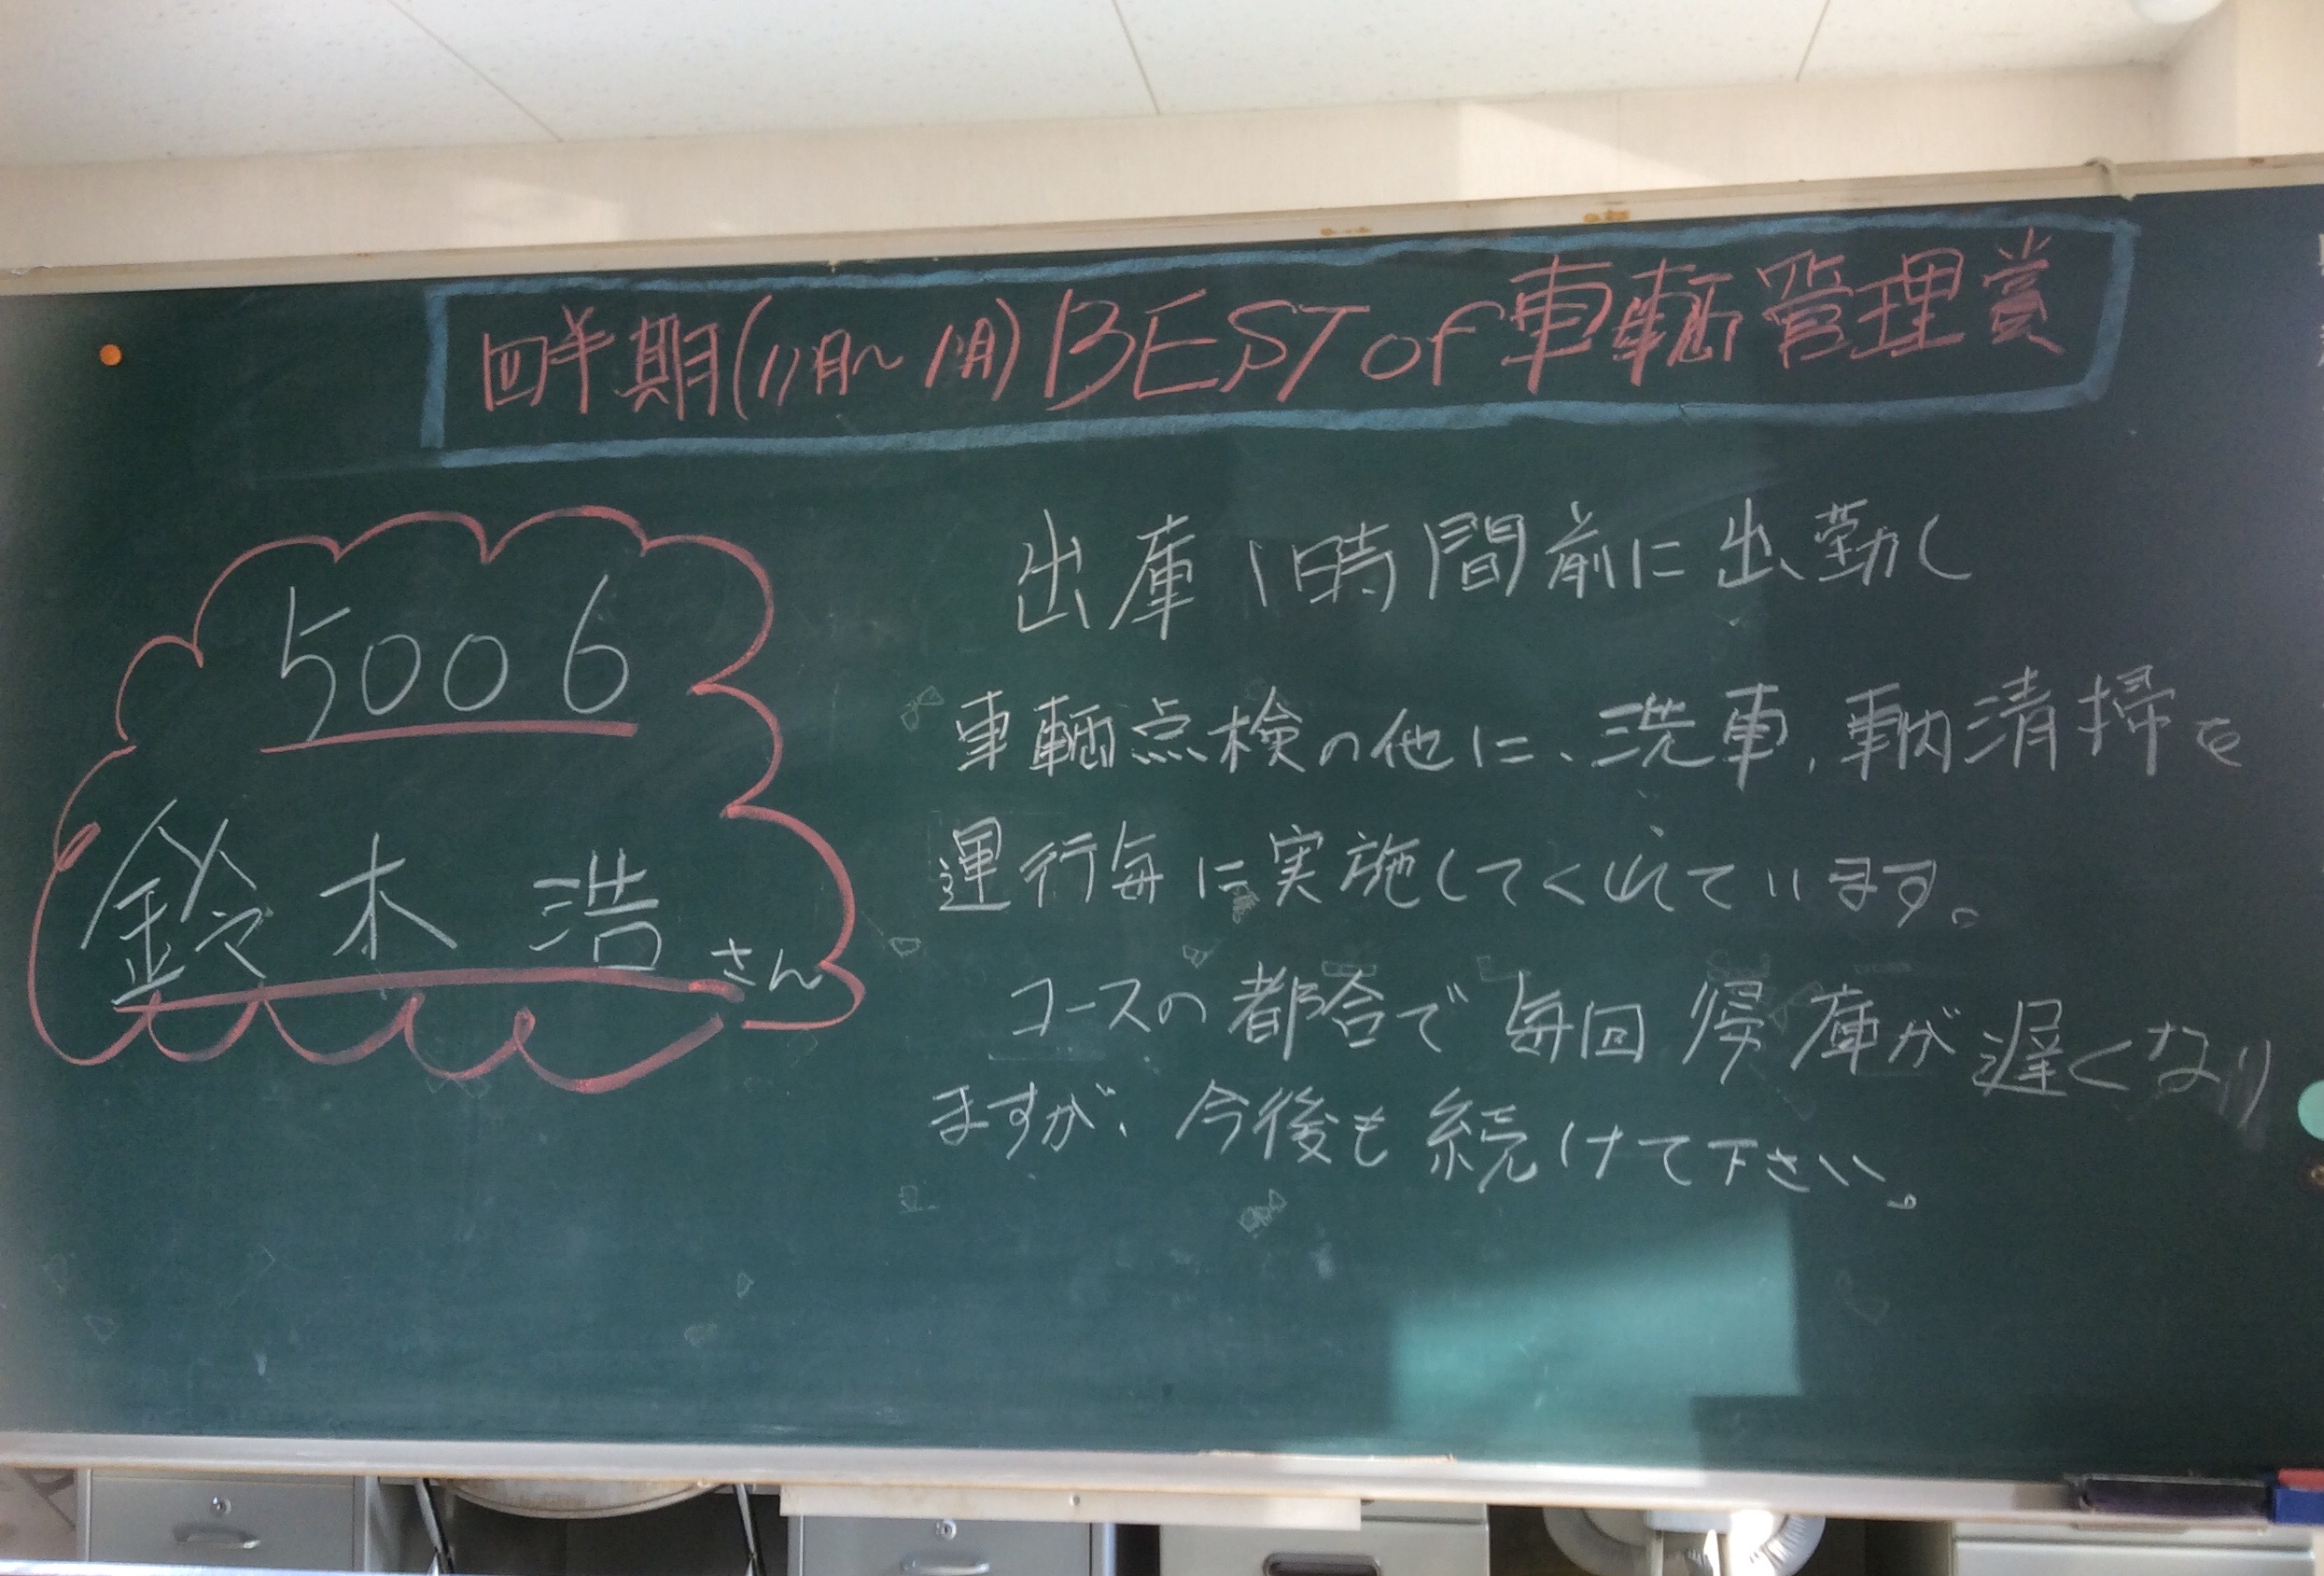 四半期(11月〜1月)BEST of 車輌管理賞
5006
鈴木 浩さん
出庫1時間前に出勤し
車輌点検の他に、洗車、車内清掃を
運行毎に実施してくれています。
コースの都合で毎回帰庫が遅くなり
ますが、今後も続けて下さい。